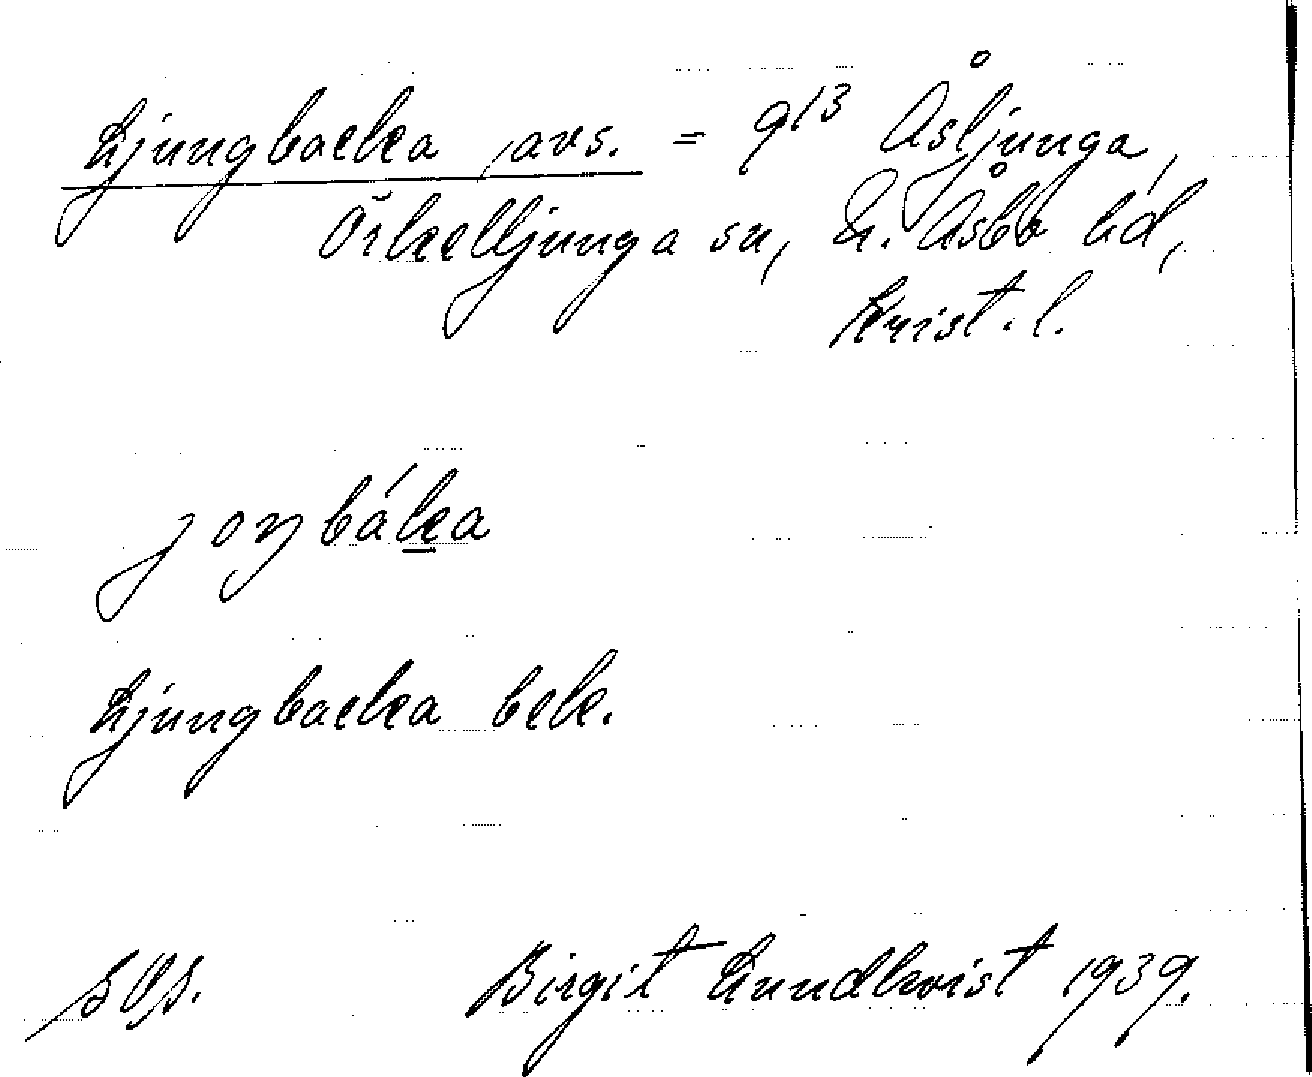 Ljungbacka, avs. = 9¹³ Åsljunga,
Örkelljunga sn, N. Åsbo hd,
Krist. l.
joŋbáka
Ljungbacka bek.
Birgit Lundkvist 1939.